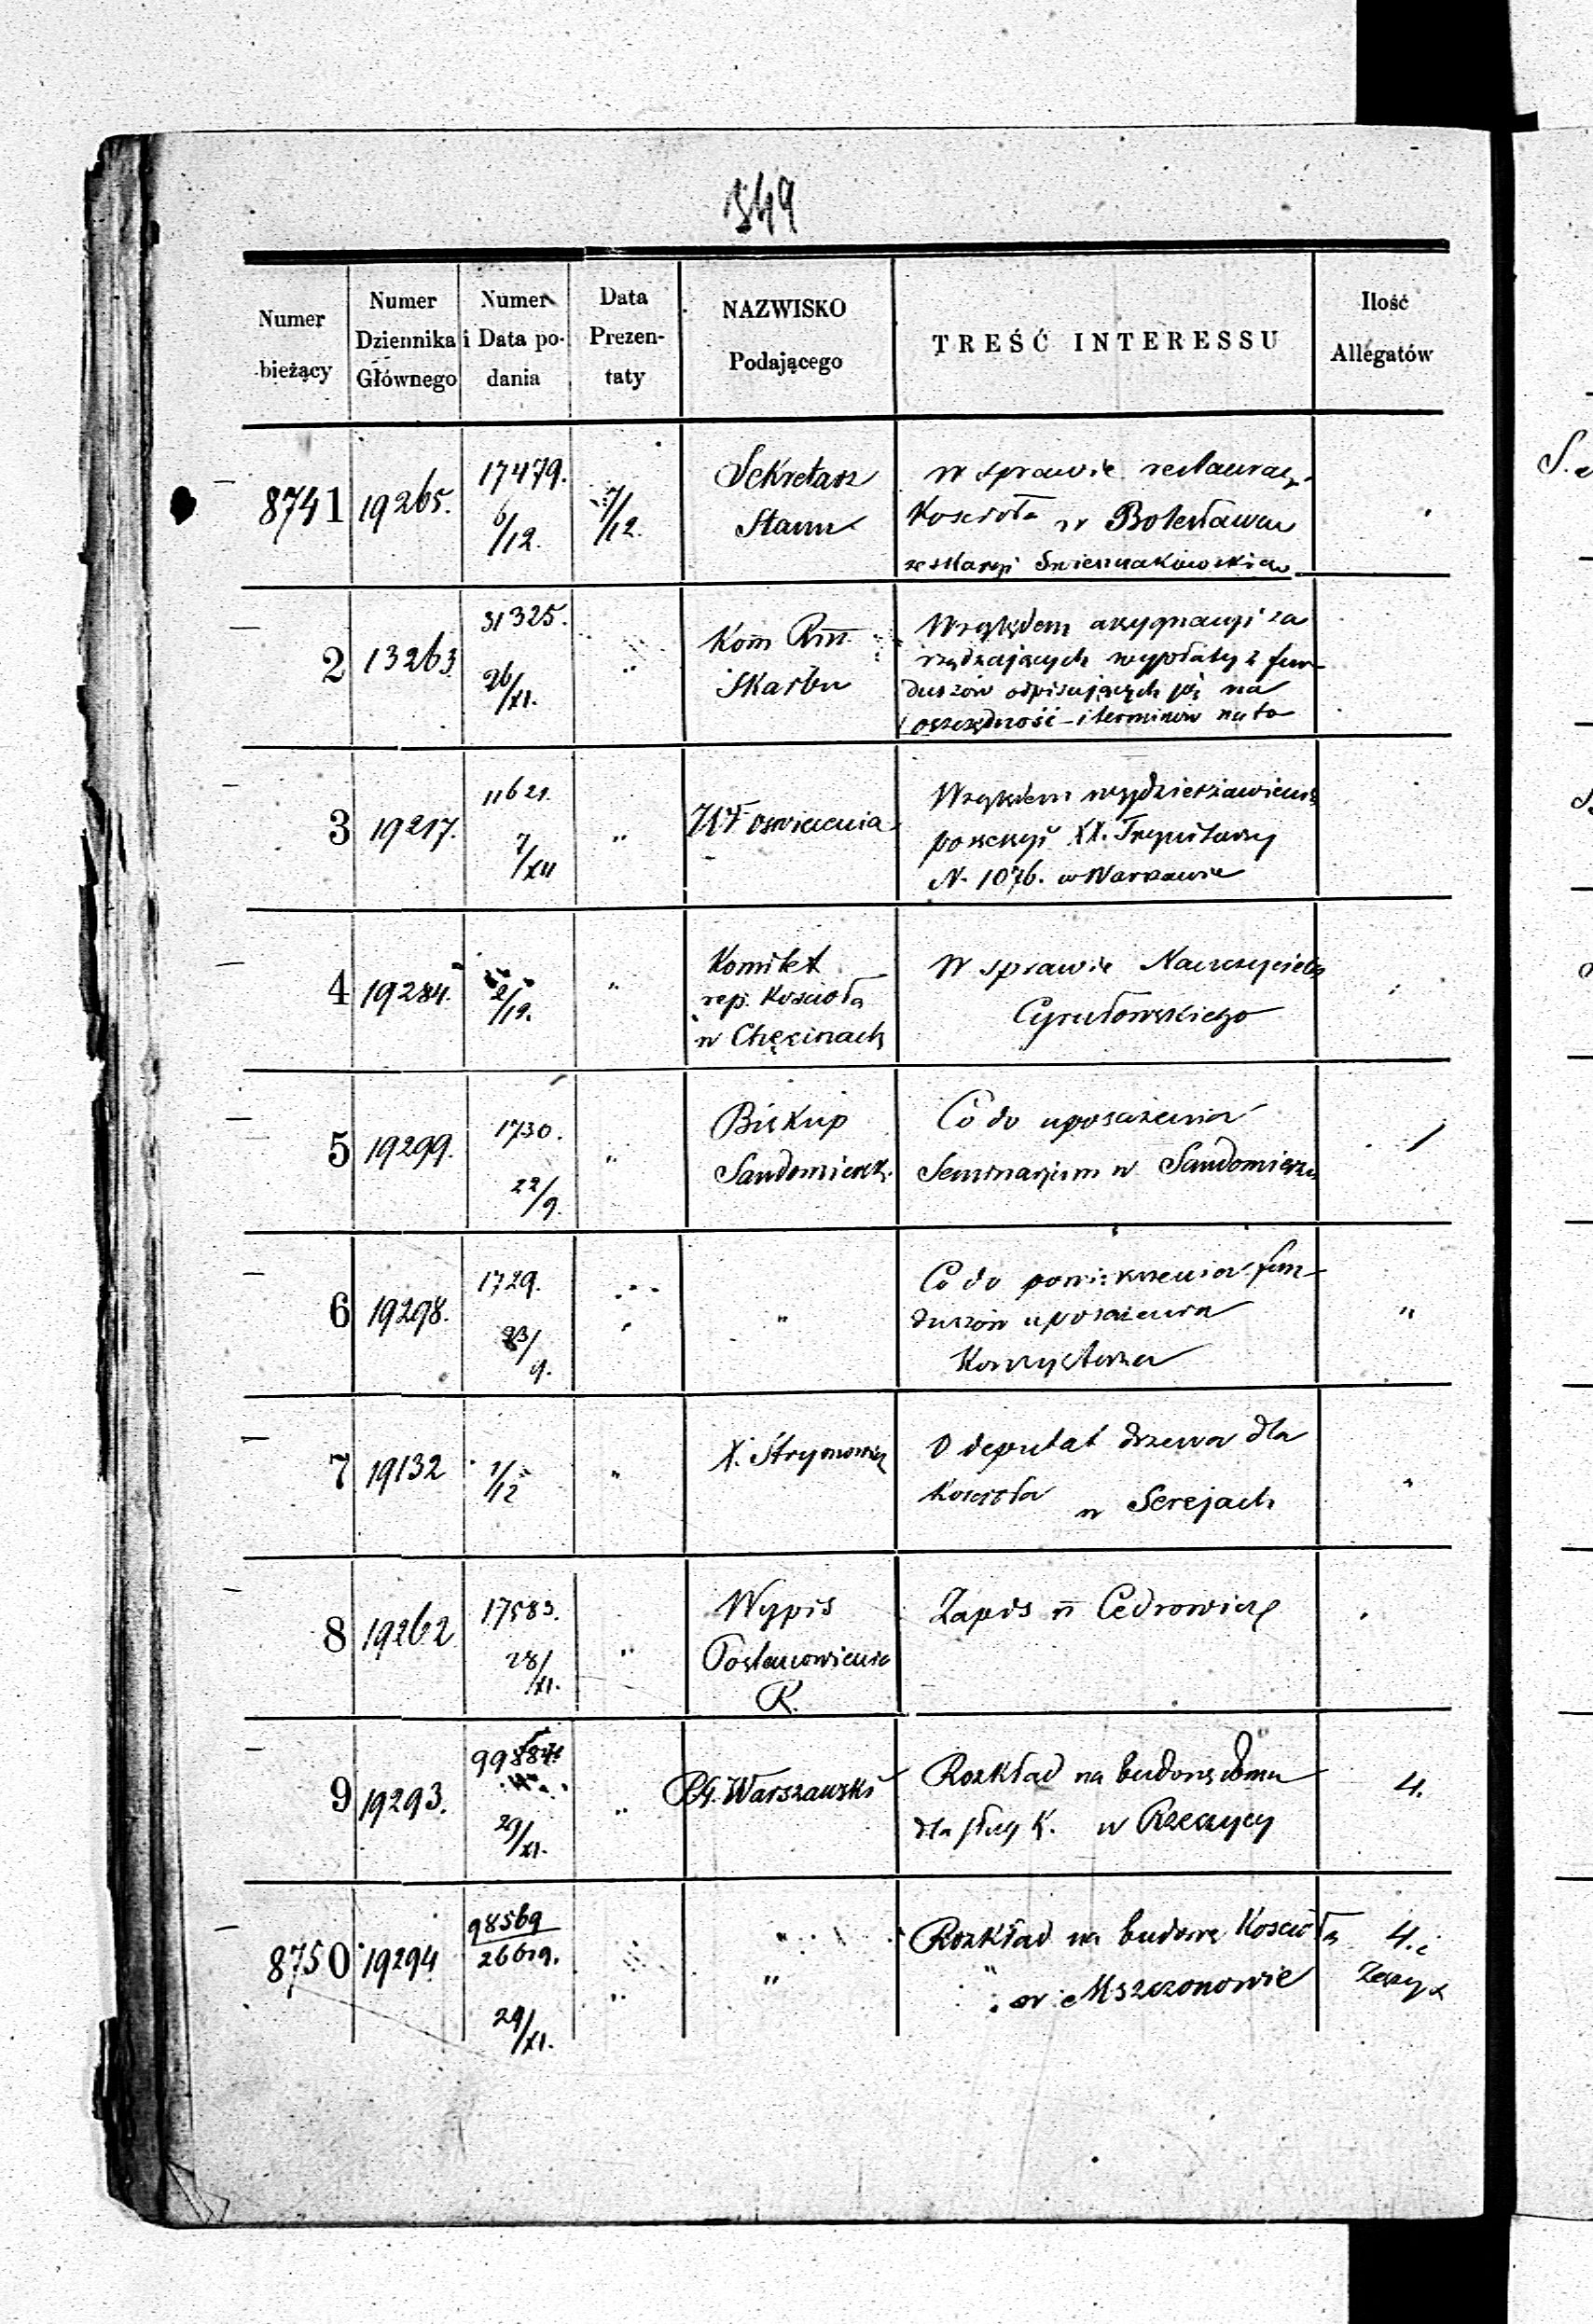 549
Numer bieżący
Numer Dziennika Głównego
Numer i Data podania
Data Prezentaty
NAZWISKO Podającego
TREŚĆ INTERESSU
Ilość Allegatów
8741 19265. 17479. 6/12. 7/12. Sekretarz Stanu
w sprawie restauracyi
Kościoła w Bolesławcu
ze skargi
2 13263 31325. 26/XI. " Kom Skarbu
Względem assygnacyi za
rządzających wypłaty z fun-
duszów odpisujących się na
oszczędność i terminów na to
3 19217. 11621. 7/XII " Oswiecenia
Względem wydzierżawienia
possessyi XX. Trynitarzy
N. 1076. w Warszawie
4 19284. 2/12. " Komitet rep. Kościoła w Chęcinach
W sprawie Nauczyciela
Cyrułowskiego
5 19299. 1730. 22/9. " Biskup Sandomiersk.
Co do uposażenia
Seminarjum w Sandomierzu
1
6 19298. 1729. 23/9. " "
Co do powiększenia fun-
duszów uposażenia
Konsystorza
"
7 19132 1/12 " X. Strymowicz
O deputat drzewa dla
Kościoła w Serejach
"
8 19262 17583. 28/XI. " Wypis Postanowienia R.
Zapis Cedrowicz
9 19293. 29/XI. " Warszawski
Rozkład na budowę domu
dla sług K. w Rzeczycy
4.
8750 19294 98569 26619. 29/XI. " "
Rozkład na budowę Kościoła
" w Mszczonowie
4. i Zeszyt